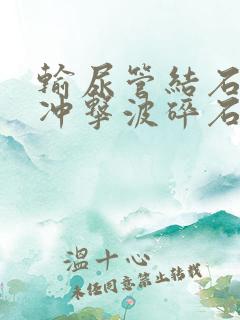 輸尿管結石
冲擊波碎石
溫十心
未经同意禁止转载